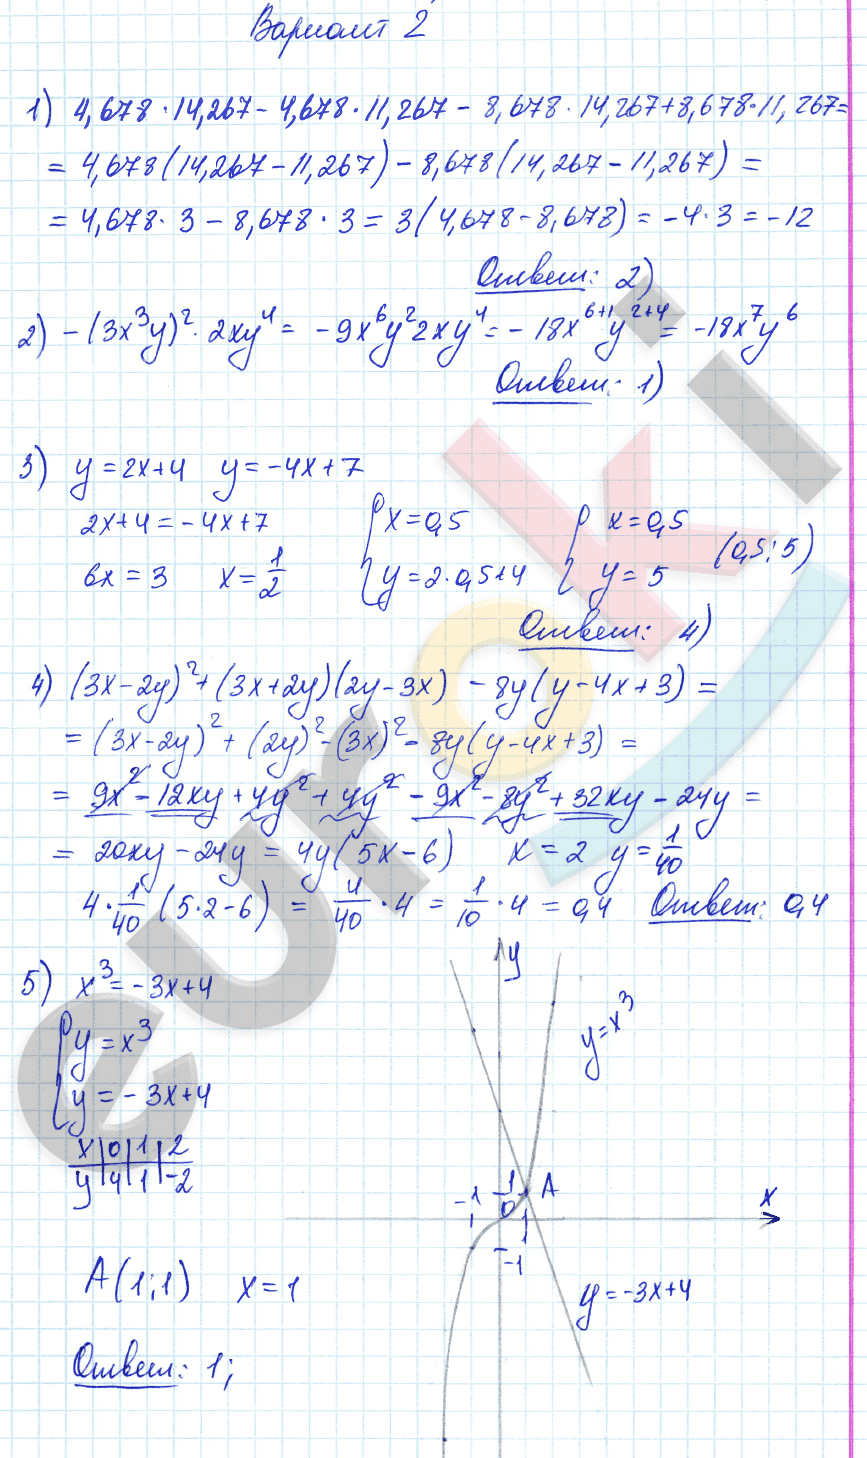 Вариант 2
1) 4,678 · 14,267 - 4,678 · 11,267 - 8,678 · 14,267 + 8,678 · 11,267 =
= 4,678 (14,267 - 11,267) - 8,678 (14,267 - 11,267) =
= 4,678 · 3 - 8,678 · 3 = 3 (4,678 - 8,678) = -4 · 3 = -12
Ответ: 2)
2) -(3x³y)² · 2xy⁴ = -9x⁶y²2xy⁴ = -18x⁶⁺¹y²⁺⁴ = -18x⁷y⁶
Ответ: 1)
3) y = 2x+4 y = -4x+7
2x+4 = -4x+7 { x = 0,5 { x = 0,5 (0,5; 5)
6x = 3 x = 1/2 y = 2·0,5+4 y = 5
Ответ: 4)
4) (3x-2y)² + (3x+2y)(2y-3x) - 8y(y-4x+3) =
= (3x-2y)² + (2y)² - (3x)² - 8y(y-4x+3) =
= 9x² - 12xy + 4y² + 4y² - 9x² - 8y² + 32xy - 24y =
= 20xy - 24y = 4y(5x-6) x = 2 y = 1/40
4 · 1/40 (5·2-6) = 4/40 · 4 = 1/10 · 4 = 0,4 Ответ: 0,4
5) x³ = -3x+4
{ y = x³
y = -3x+4
x | 0 | 1 | 2
y | 4 | 1 | -2
A(1;1) x = 1
Ответ: 1;
y
y = x³
-1 1 A x
0 1
-1
y = -3x+4
euroki